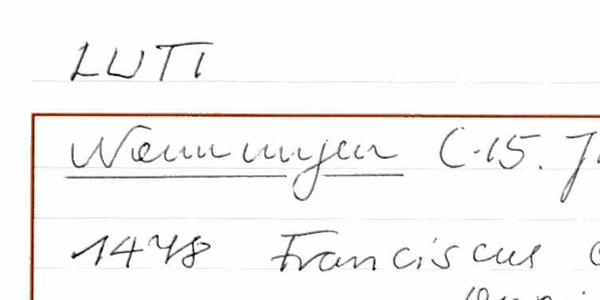 LUTI
Nennungen (-15. J
1478 Franciscus